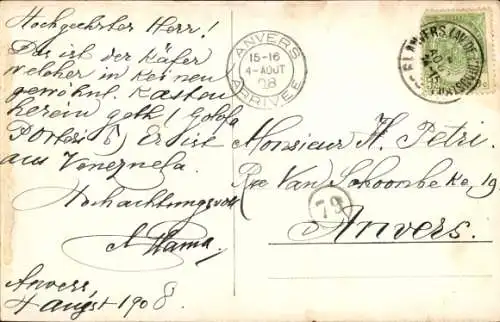 Hochgeehrter Herr!
Da ist der Käfer
welcher in keinen
gewöhnl. Kasten
herein geht! Golofa
Porteri ♂ Er ist
aus Venezuela.
Hochachtungsvoll
Anvers,
4 august 1908.
ANVERS
15-16
4-AOUT
08
ARRIVEE
ANVERS
Monsieur H. Petri.
Rue Van Schoonbeke, 19
78
Anvers.